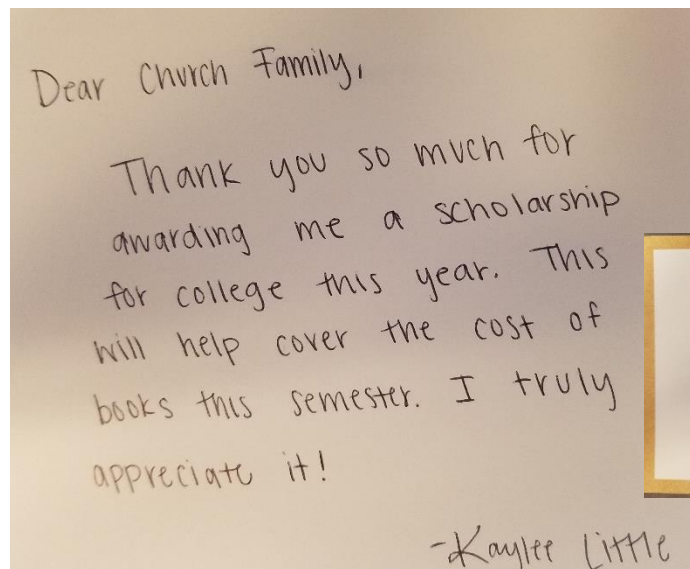 Dear Church Family,
Thank you so much for
awarding me a scholarship
for college this year. This
will help cover the cost of
books this semester. I truly
appreciate it!
-Kaylee Little